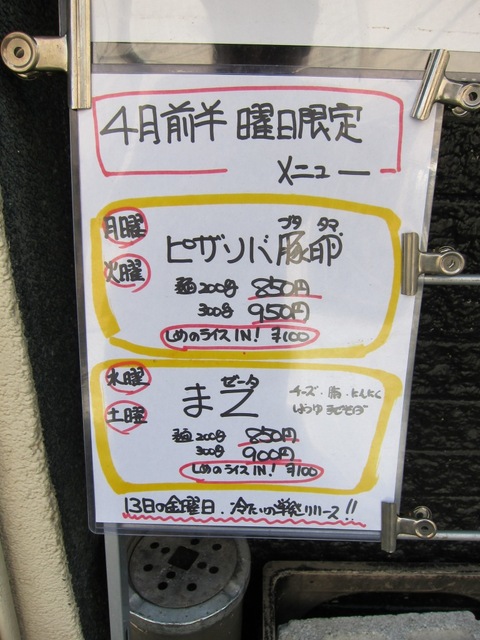 4月前半 曜日限定
メニュー
月曜
火曜
ブタ タマ
ピザソバ豚卵
麺200g 850円
300g 950円
〆めのライスIN! ¥100
水曜
土曜
ゼータ
まZ
チーズ・脂・にんにく
しょうゆ
麺200g 850円
300g 900円
〆めのライスIN! ¥100
13日の金曜日、冷たいの単発リリース!!